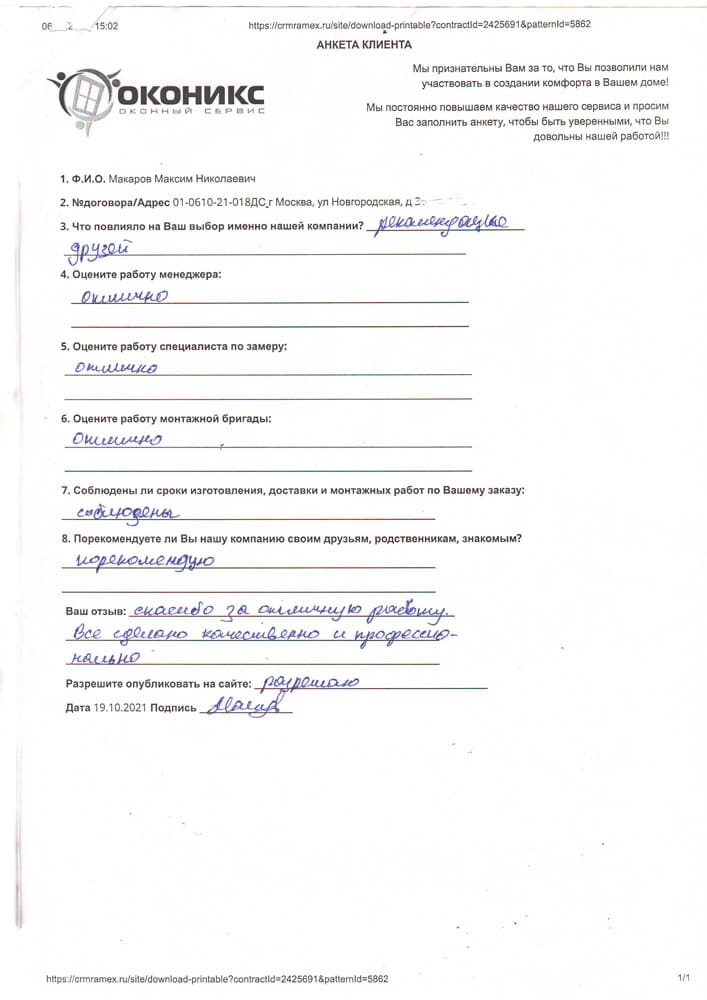 15:02 https://crmramex.ru/site/download-printable?contractId=2425691&patternId=5862
АНКЕТА КЛИЕНТА
ОКОНИКС
ОКОННЫЙ СЕРВИС
Мы признательны Вам за то, что Вы позволили нам
участвовать в создании комфорта в Вашем доме!
Мы постоянно повышаем качество нашего сервиса и просим
Вас заполнить анкету, чтобы быть уверенными, что Вы
довольны нашей работой!!!
1. Ф.И.О. Макаров Максим Николаевич
2. №договора/Адрес 01-0610-21-018ДС,г Москва, ул Новгородская, д
3. Что повлияло на Ваш выбор именно нашей компании? рекомендацые
друзей
4. Оцените работу менеджера:
отлично
5. Оцените работу специалиста по замеру:
отлично
6. Оцените работу монтажной бригады:
отлично
7. Соблюдены ли сроки изготовления, доставки и монтажных работ по Вашему заказу:
соблюдены
8. Порекомендуете ли Вы нашу компанию своим друзьям, родственникам, знакомым?
порекомендую
Ваш отзыв: спасибо за отличную работу.
Все сделано качественно и профессио-
нально
Разрешите опубликовать на сайте: разрешаю
Дата 19.10.2021 Подпись
https://crmramex.ru/site/download-printable?contractId=2425691&patternId=5862 1/1